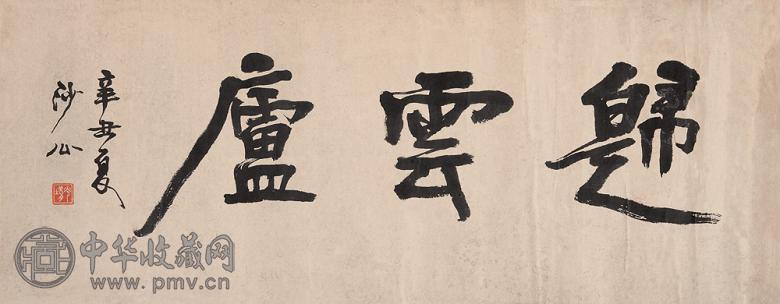 歸雲廬
辛丑夏
沙公
中华收藏网
www.pmv.cn